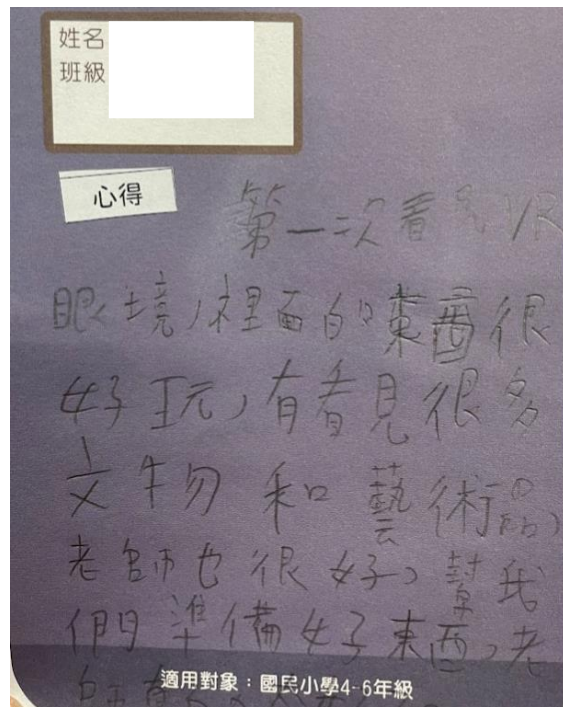 姓名
班級
心得
第一次看見VR
眼境,裡面的東西很
好玩,有看見很多
文物和藝術品,
老師也很好,幫我
們準備好東西,老
師真
適用對象:國民小學4-6年級